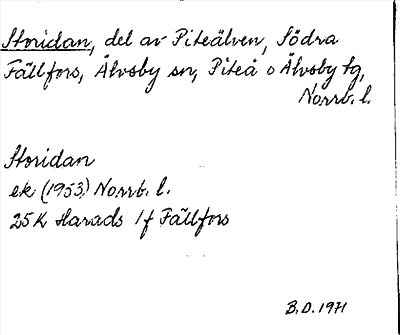 Storidan, del av Piteälven, Södra
Fällfors, Älvsby sn, Piteå o Älvsby tg,
Norrb. l.
Storidan
ek (1953) Norrb. l.
25K Harads 1f Fällfors
B.D. 1971